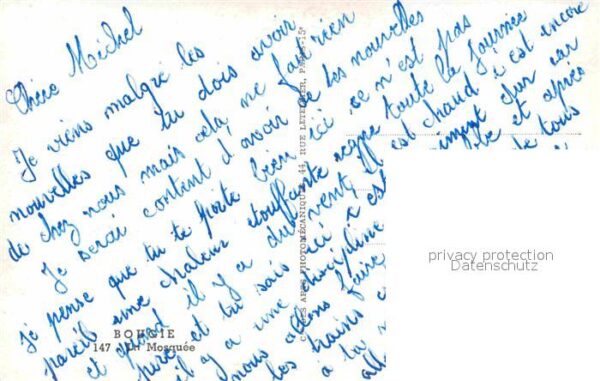 Chère Michel
Je viens malgré les
nouvelles que tu dois avoir
de chez nous mais cela ne fait rien
Je serai content d'avoir de tes nouvelles
je pense que tu te porte bien ici se n'est pas
pareil une chaleur étouffante règne toute la journée
et quand il y a du vent, il est chaud c'est encore
pire et tu sais ici c'est
il y a une discipline
nous allons faire
les trains
à ta
all
et après
de tous
BOUGIE
147 - La Mosquée
PHOTOMÉCANIQUES, 44, RUE LETELLIER, PARIS-15e
privacy protection
Datenschutz